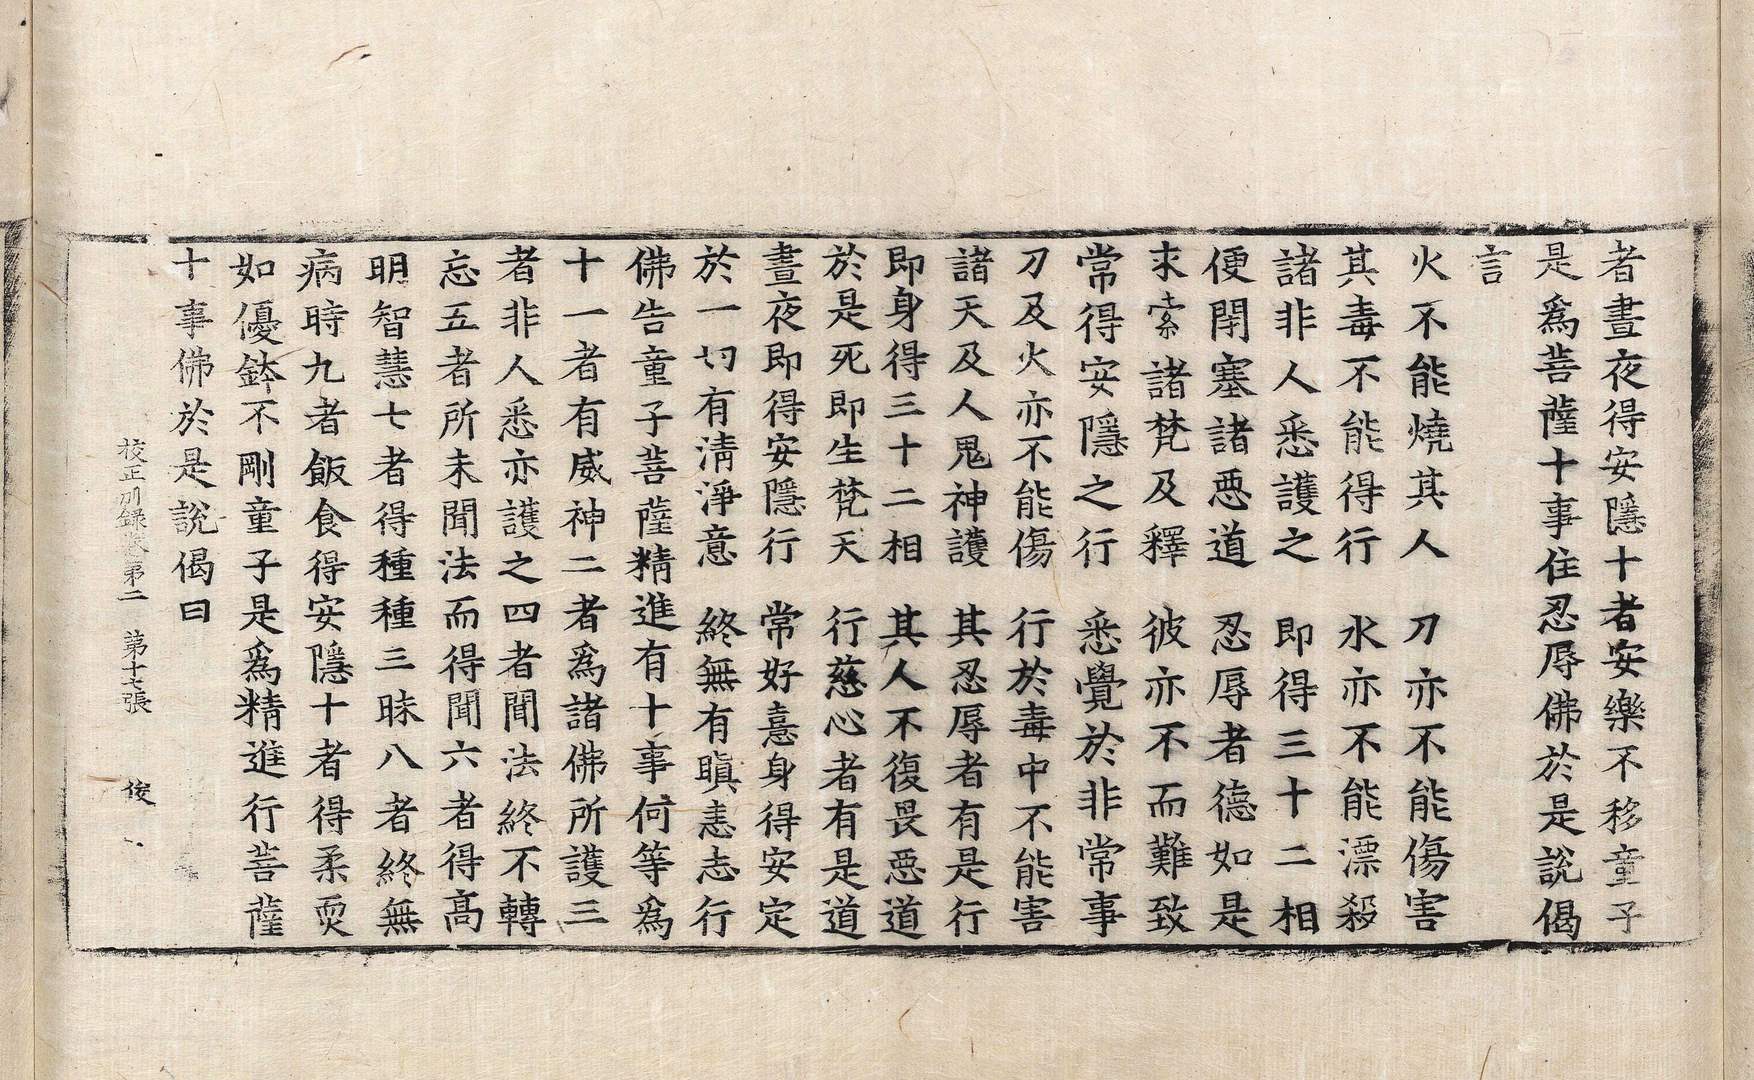 者晝夜得安隱十者安樂不移童子
是爲菩薩十事住忍辱佛於是說偈
言
火不能燒其人　刀亦不能傷害
其毒不能得行　水亦不能漂殺
諸非人悉護之　即得三十二相
便閉塞諸惡道　忍辱者德如是
求索諸梵及釋　彼亦不而難致
常得安隱之行　悉覺於非常事
刀及火亦不能傷　行於毒中不能害
諸天及人鬼神護　其忍辱者有是行
即身得三十二相　其人不復畏惡道
於是死即生梵天　行慈心者有是道
晝夜即得安隱行　常好憙身得安定
於一切有淸淨意　終無有瞋恚志行
佛告童子菩薩精進有十事何等爲
十一者有威神二者爲諸佛所護三
者非人悉亦護之四者聞法終不轉
忘五者所未聞法而得聞六者得高
明智慧七者得種種三昧八者終無
病時九者飯食得安隱十者得柔耎
如優鉢不剛童子是爲精進行菩薩
十事佛於是說偈曰
校正別錄卷第二　第十七張　俊